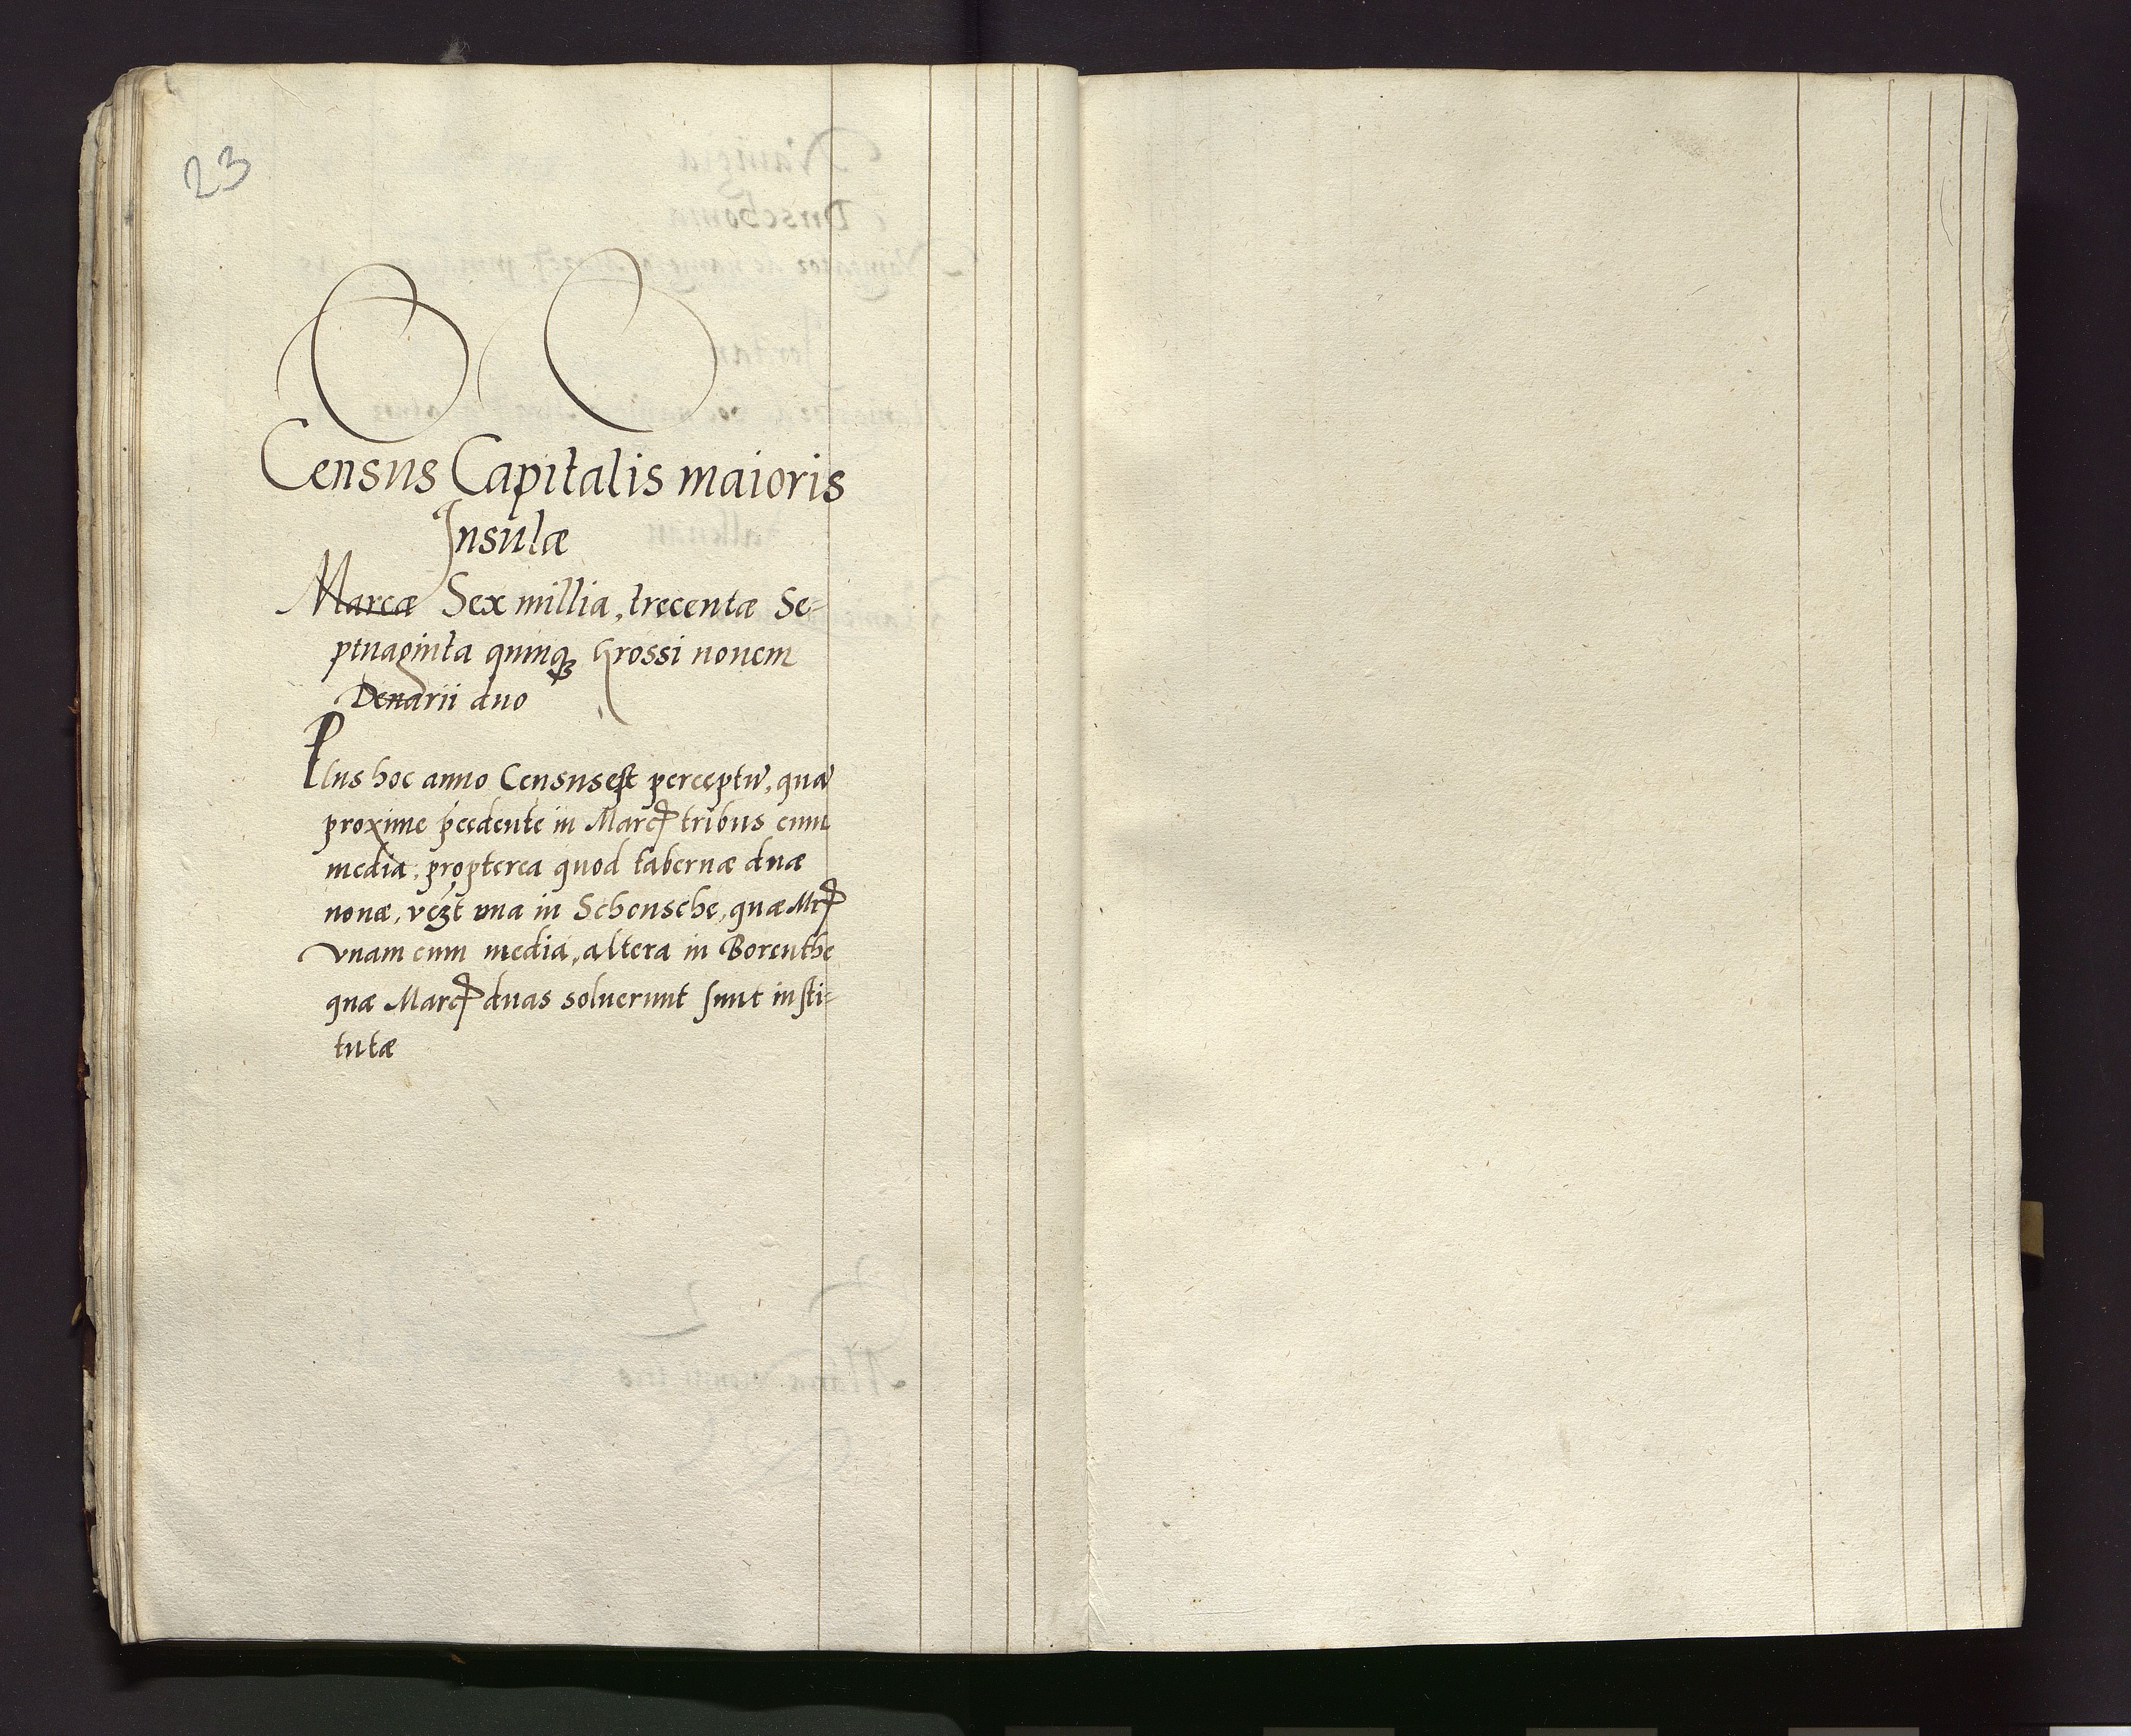 23
Census Capitalis maioris
Insulæ
Marcæ Sex millia, trecentæ Se-
ptuaginta quinqꝫ Grossi nouem
Denarii duo
Plus hoc anno Census est perceptũ, quã
proxime p̄cedente in Marcꝭ tribus cum
media, propterea quod tabernæ duæ
nouæ, vczt vna in Schonsche, quæ Mrꝭ
vnam cum media, altera in Borenthe
quæ Marcꝭ duas soluerunt sunt insti-
tutæ